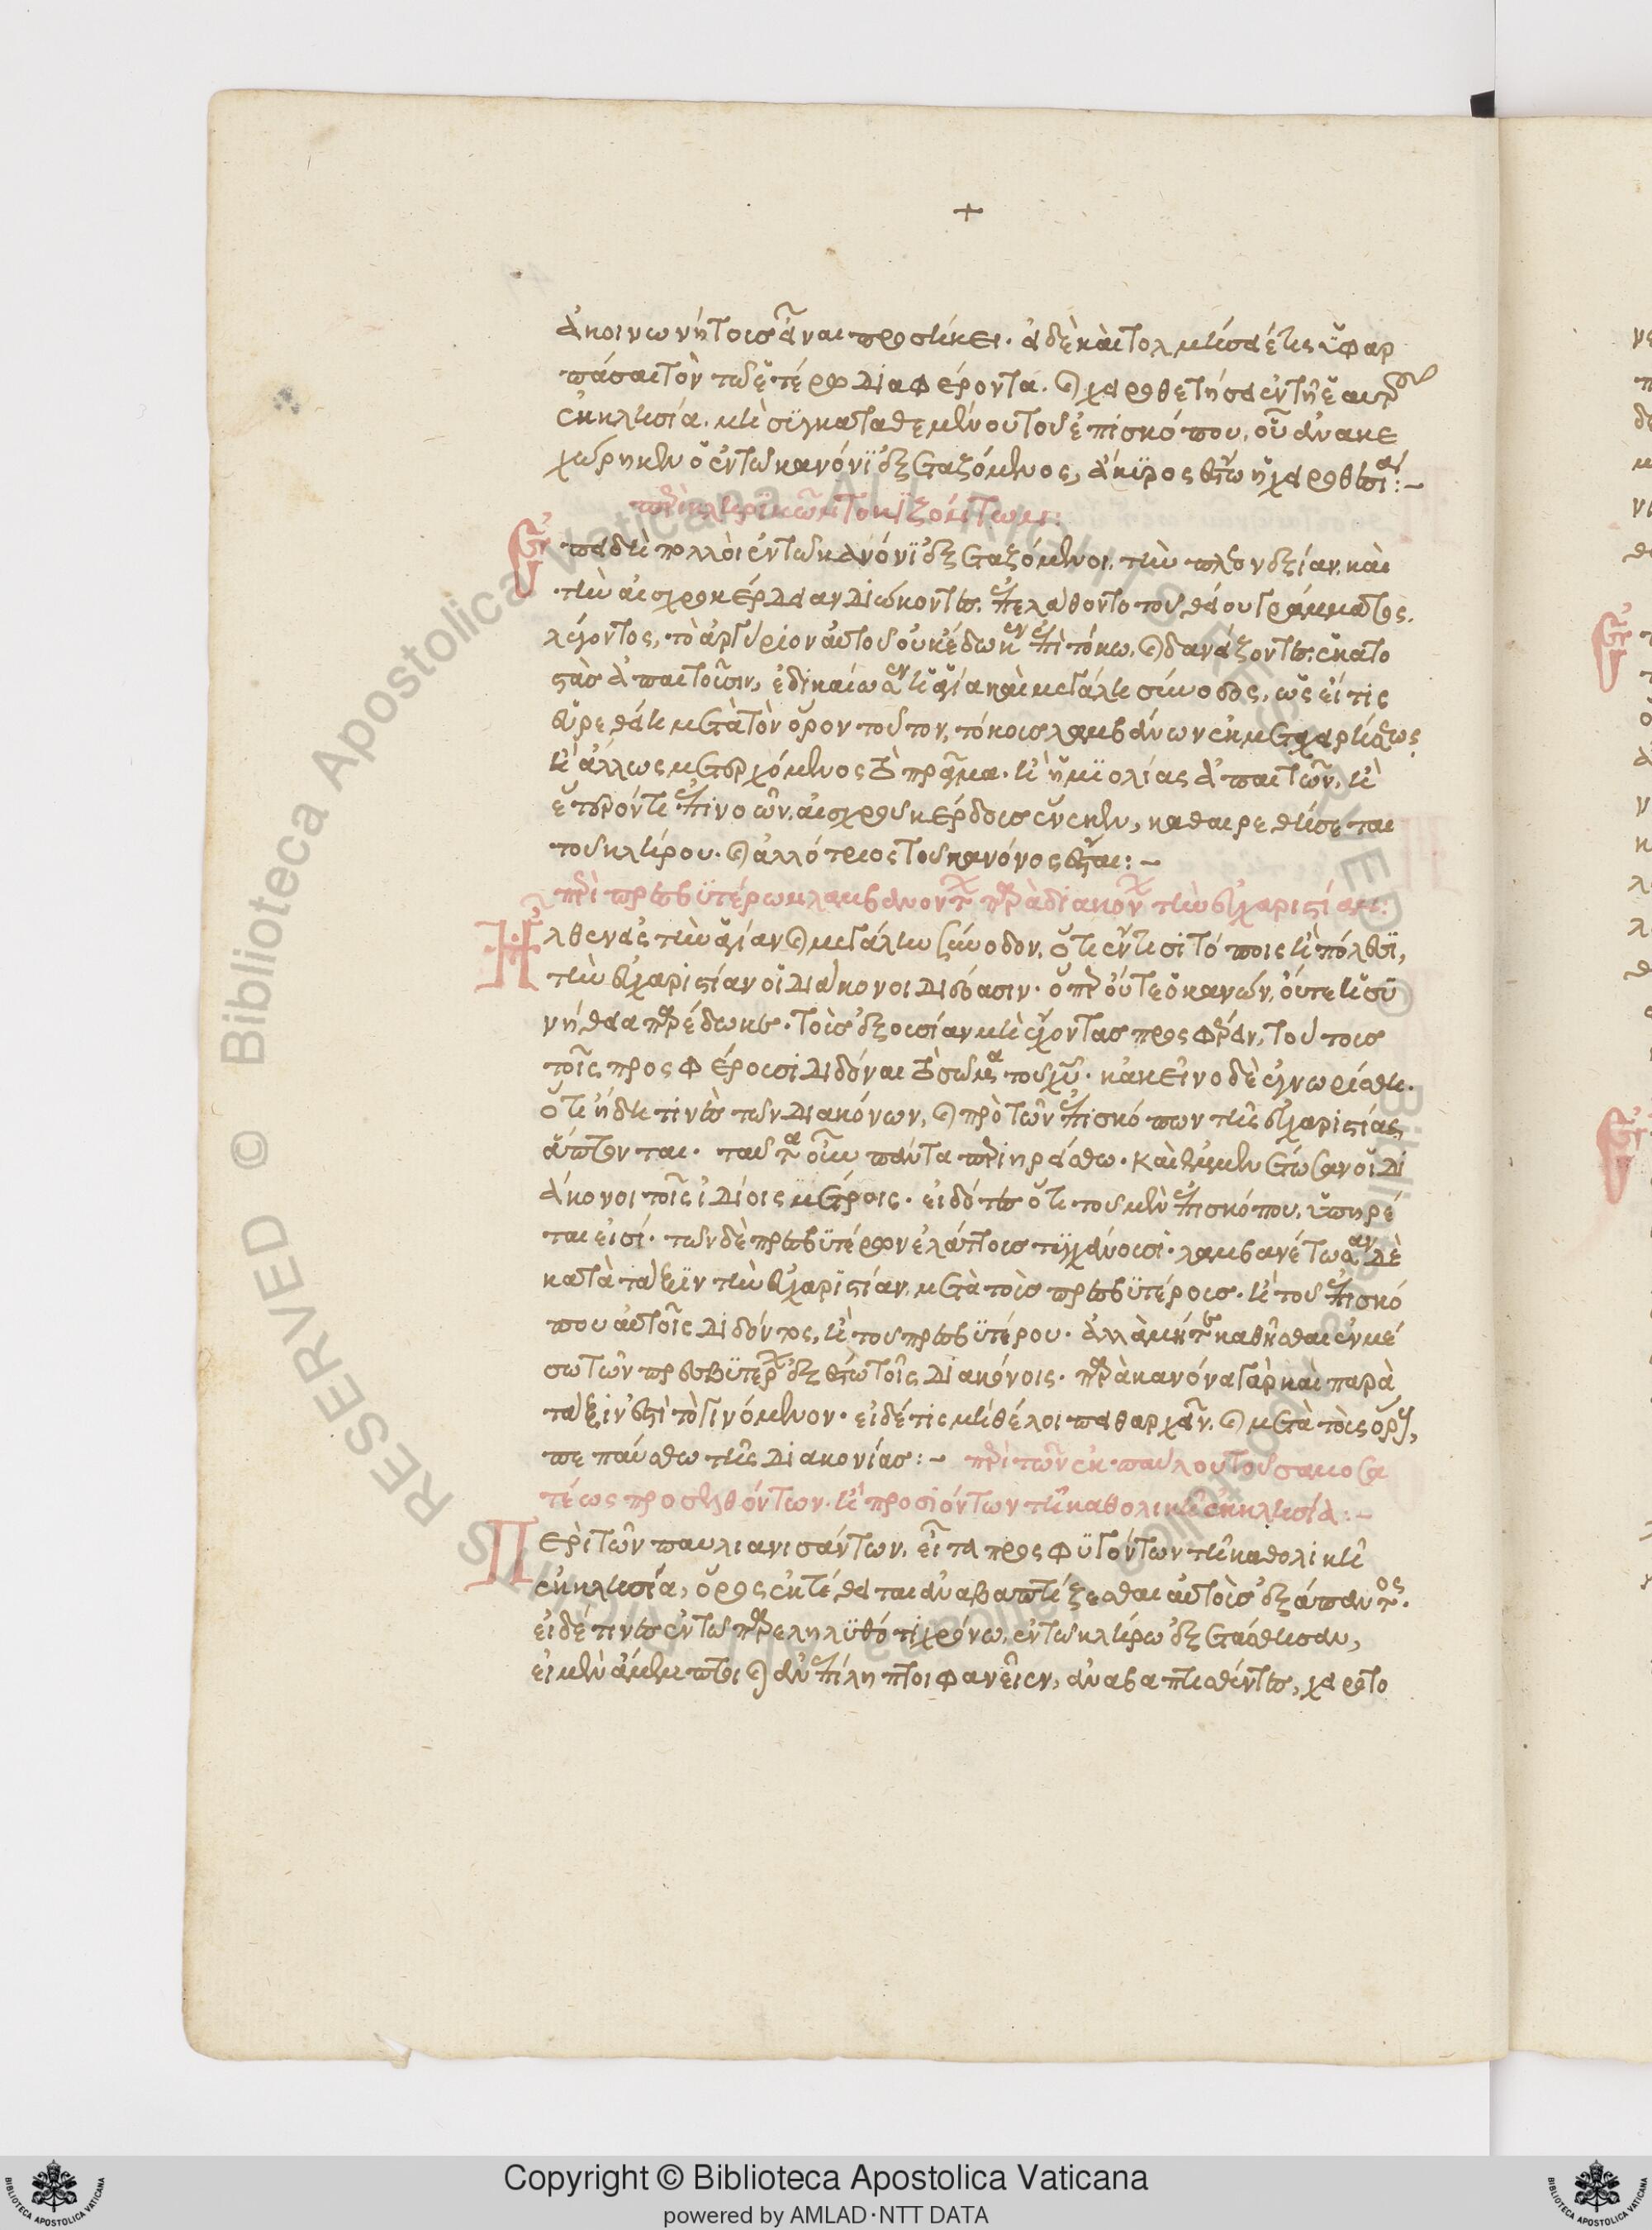 +
ἀκοινωνήτους εἶναι προσήκει. εἰ δὲ καὶ τολμήσει έ τις ὑφαρ
πάσαι τὸν τῷ ἑτέρῳ διαφέροντα. καὶ χειροθετῆσαι ἐν τῇ ἑαυτοῦ
ἐκκλησία. μὴ συγκαταθεμένου τοῦ ἐπισκόπου, οὗ ἀνακε
χώρηκεν ὁ ἐν τῷ κανόνι ἐξεταζόμενος, ἄκυρος ἔστω ἡ χειροθεσία:–
περὶ κληρικῶν τοκιζόντων:
Ἐπειδὴ πολλοὶ ἐν τῷ κανόνι ἐξεταζόμενοι, τὴν πλεονεξίαν, καὶ
τὴν αἰσχροκέρδειαν διώκοντες, ἐπελάθοντο τοῦ θείου γράμματος,
λέγοντος, τὸ ἀργύριον αὐτοῦ οὐκ έδωκεν ἐπὶ τόκω. καὶ δανείζοντες, ἑκατο
στὰς ἀπαιτοῦσιν, ἐδικαίωσεν ἡ ἁγία καὶ μεγάλη σύνοδος, ὡς εἴ τις
εὑρεθείη μετὰ τὸν ὅρον τοῦτον, τόκους λαμβάνων ἐκ μεταχειρήσεως
ἢ ἄλλως μετερχόμενος τὸ πρᾶγμα. ἢ ἡμιολίας ἀπαιτῶν, ἢ
ἕτερόν τι ἐπινοῶν, αἰσχροῦ κέρδους ἕνεκεν, καθαιρεθήσεται
τοῦ κλήρου. καὶ ἀλλότριος τοῦ κανόνος ἔσται:–
περὶ πρεσβυτέρων λαμβανόντων παρὰ διακόνων τὴν εὐχαριστίαν:
Ἦλθεν εἰς τὴν ἁγίαν καὶ μεγάλην σύνοδον, ὅτι ἔν τισι τόποις ἢ πόλεσι,
τὴν εὐχαριστίαν οἱ διάκονοι διδόασιν. ὅπερ οὔτε ὁ κανών, οὔτε ἡ συ
νήθεια παρέδωκε. τοὺς ἐξουσίαν μὴ ἔχοντας προσφέρειν, τούτους
τοῖς προσφέρουσι διδόναι τὸ σῶμα τοῦ χυ. κἀκεῖνο δὲ ἐγνωρίσθη.
ὅτι ήδη τινὲς τῶν διακόνων, καὶ πρὸ τῶν ἐπισκόπων τῆς εὐχαριστίας,
ἅπτονται. ταῦτα οὖν πάντα περιηρείσθω. καὶ ἐμμενέτωσαν οἱ δι
άκονοι τοῖς ἰδίοις μέτροις. εἰδότες ὅτι τοῦ μὲν ἐπισκόπου, ὑπηρέ
ται εἰσί. τῶν δὲ πρεσβυτέρων ἐλάττους τυγχάνουσι. λαμβανέτωσαν δὲ
κατὰ τάξιν τὴν εὐχαριστίαν, μετὰ τοὺς πρεσβυτέρους. ἢ τοῦ ἐπισκό
που αὐτοῖς διδόντος, ἢ τοῦ πρεσβυτέρου. ἀλλὰ μή τε καθῆσθαι ἐν μέ
σω τῶν πρεσβυτέρων ἐξέστω τοῖς διακόνοις. παρὰ κανόνα γὰρ καὶ παρὰ
τάξιν ἐστὶ τὸ γινόμενον. εἰ δέ τις μὴ θέλοι πειθαρχεῖν, καὶ μετὰ τοὺς ὅρους,
πεπαύσθω τῆς διακονίας:– περὶ τῶν ἐκ παύλου τοῦ σαμοσα
τέως προσελθόντων. ἢ προσιόντων τῇ καθολικῇ ἐκκλησίᾳ:–
Περὶ τῶν παυλιανισάντων, εἶτα προσφυγόντων τῇ καθολικῇ
ἐκκλησία, ὅρος ἐκτέθειται ἀναβαπτίζεσθαι αὐτοὺς ἐξάπαντος.
εἰ δέ τινες ἐν τῷ παρεληλυθότι χρόνω, ἐν τῷ κλήρω ἐξετάσθησαν,
εἰ μὲν ἄμεμπτοι καὶ ἀνεπίληπτοι φανεῖεν, ἀναβαπτισθέντες, χειροτο
Copyright © Biblioteca Apostolica Vaticana
powered by AMLAD·NTT DATA